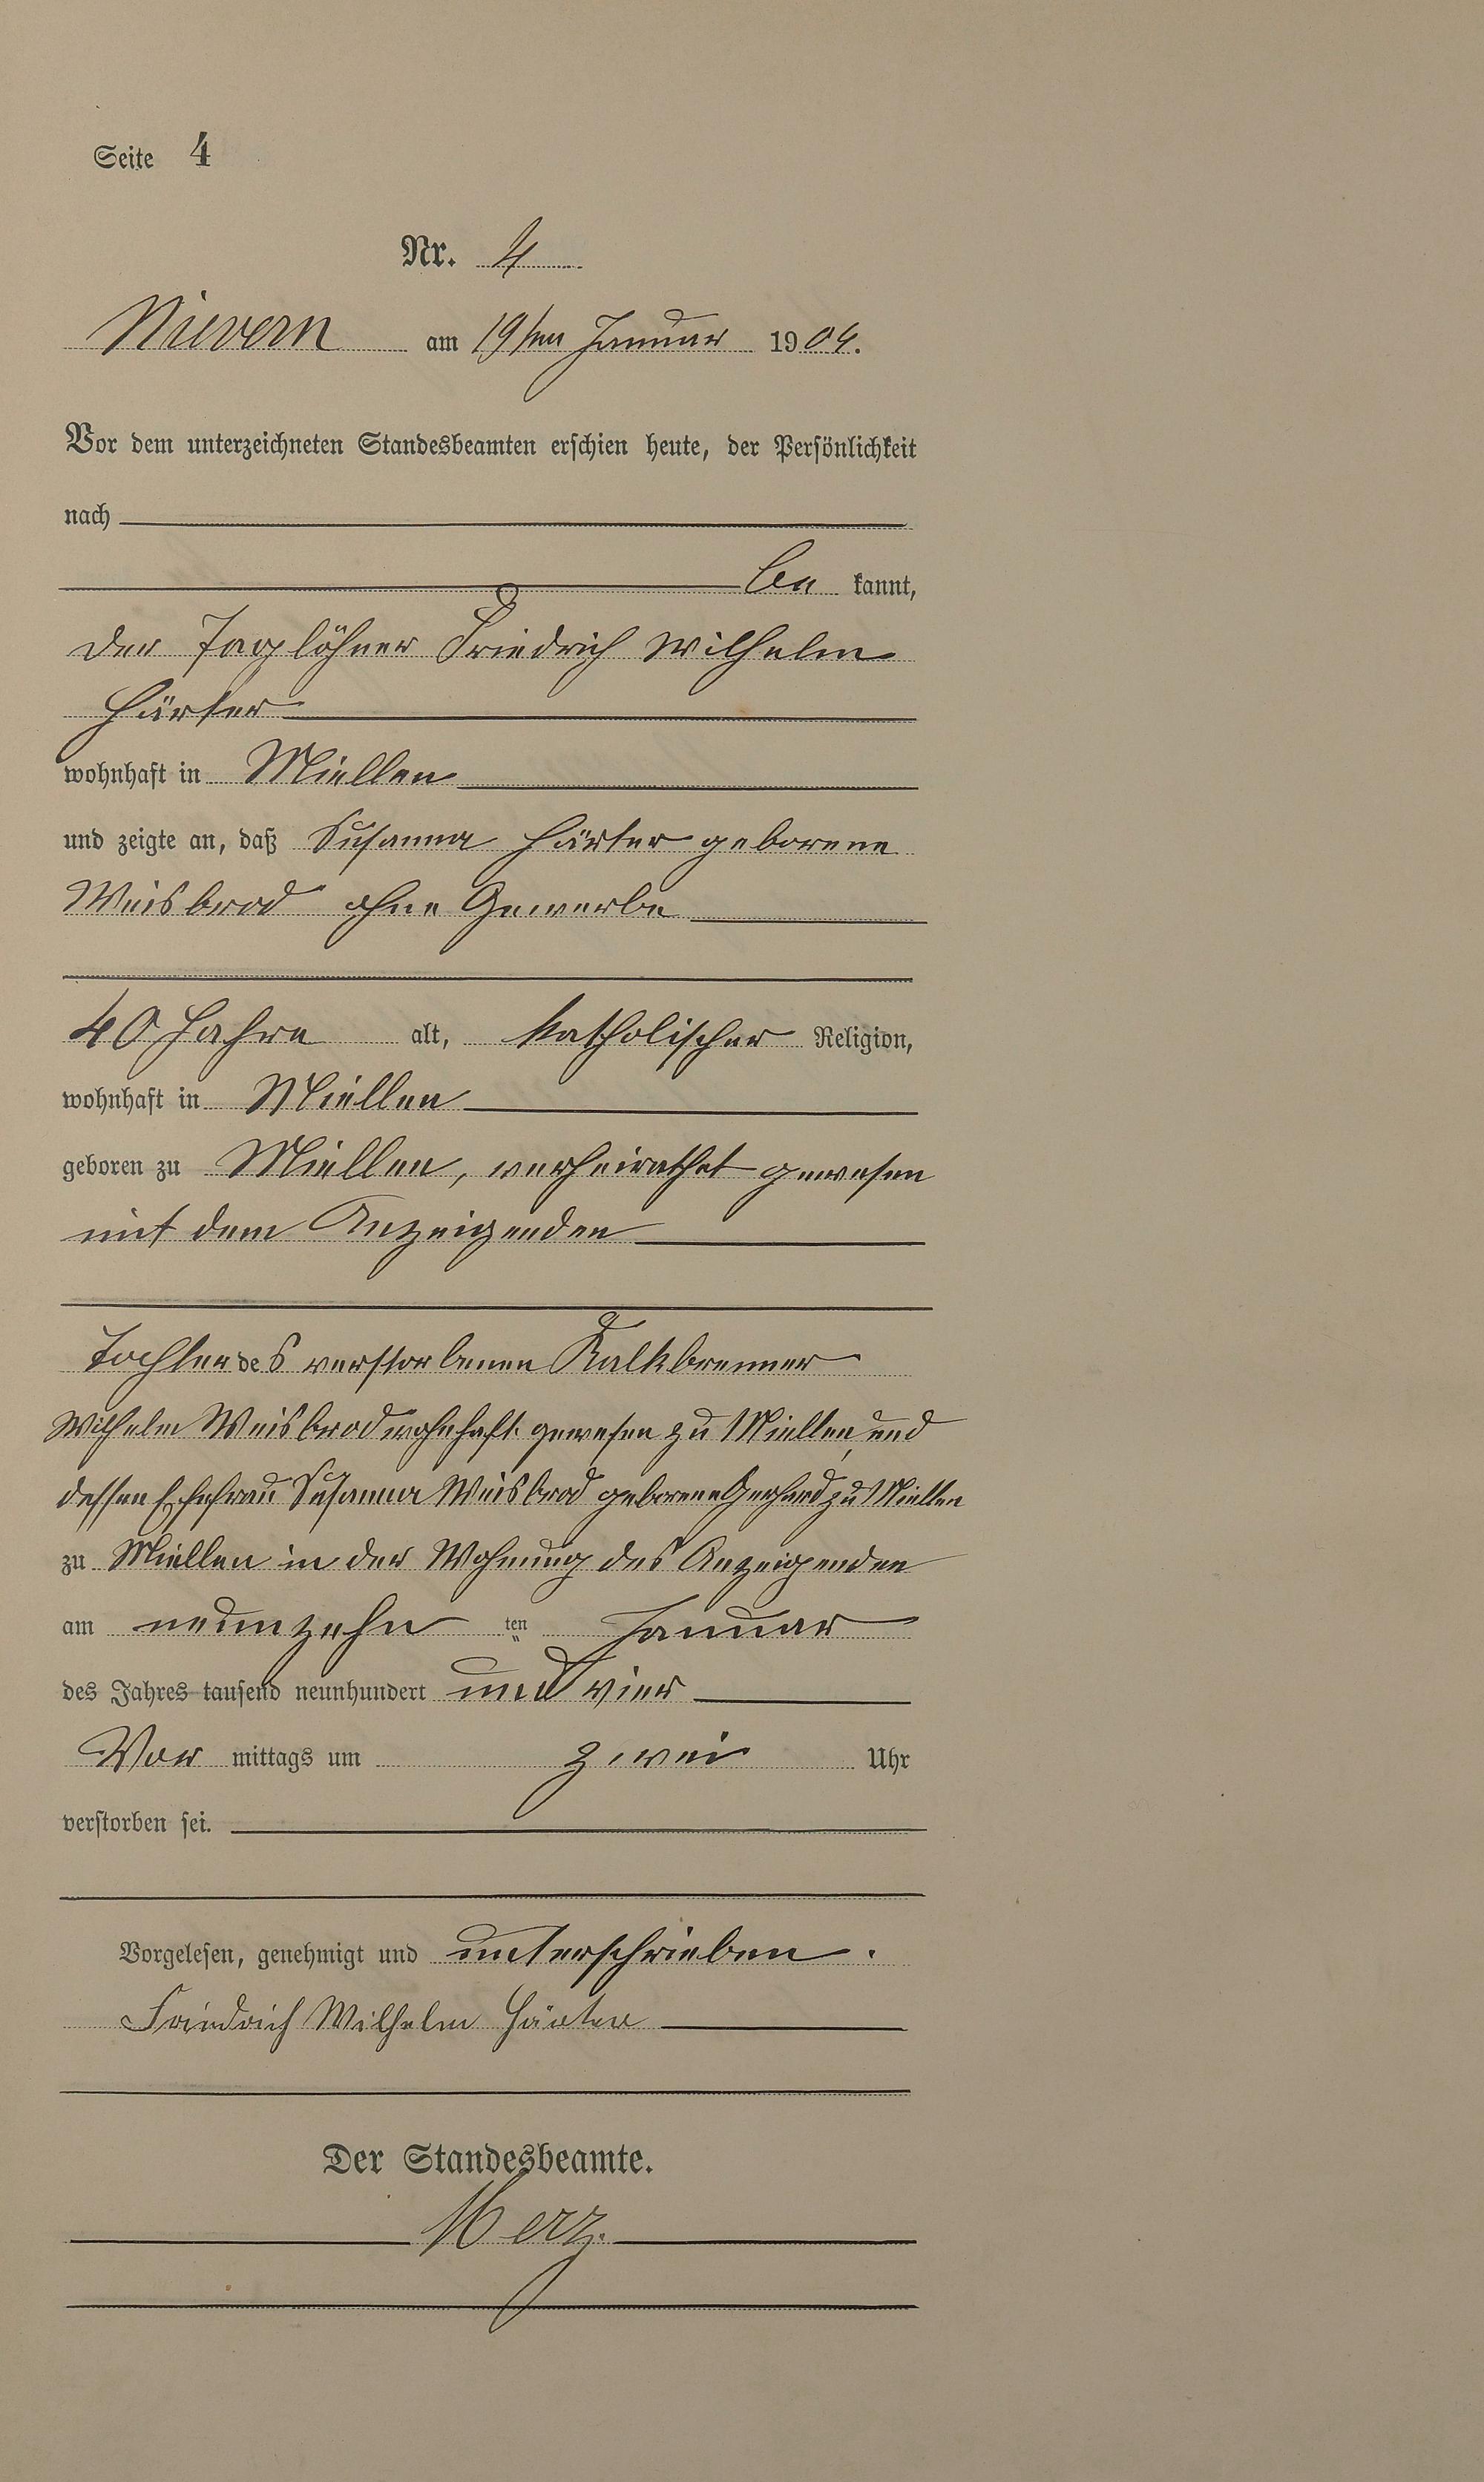 Seite 4
Nr. 4
Nievern am 19ten Januar 1904.
Vor dem unterzeichneten Standesbeamten erschien heute, der Persönlichkeit
nach
be kannt,
der Taglöhner Friedrich Wilhelm
Härter
wohnhaft in Miellen
und zeigte an, daß Susanna Härter geborene
Weisbrod ohne Gewerbe
40 Jahre alt, katholischer Religion,
wohnhaft in Miellen
geboren zu Miellen, verheirathet gewesen
mit dem Anzeigenden
Tochter des verstorbenen Kalkbrenner
Wilhelm Weisbrod wohnhaft gewesen zu Miellen, und
dessen Ehefrau Susanna Weisbrod geborene Gerhard zu Miellen
zu Miellen in der Wohnung des Anzeigenden
am neunzehn ten Januar
des Jahres tausend neunhundert und vier
Vor mittags um zwei Uhr
verstorben sei.
Vorgelesen, genehmigt und unterschrieben.
Friedrich Wilhelm Härter
Der Standesbeamte.
Merz.